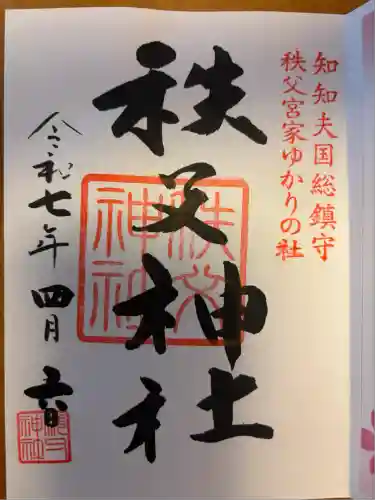 知知夫国総鎮守
秩父宮家ゆかりの社
秩父神社
秩父神社
令和七年四月六日